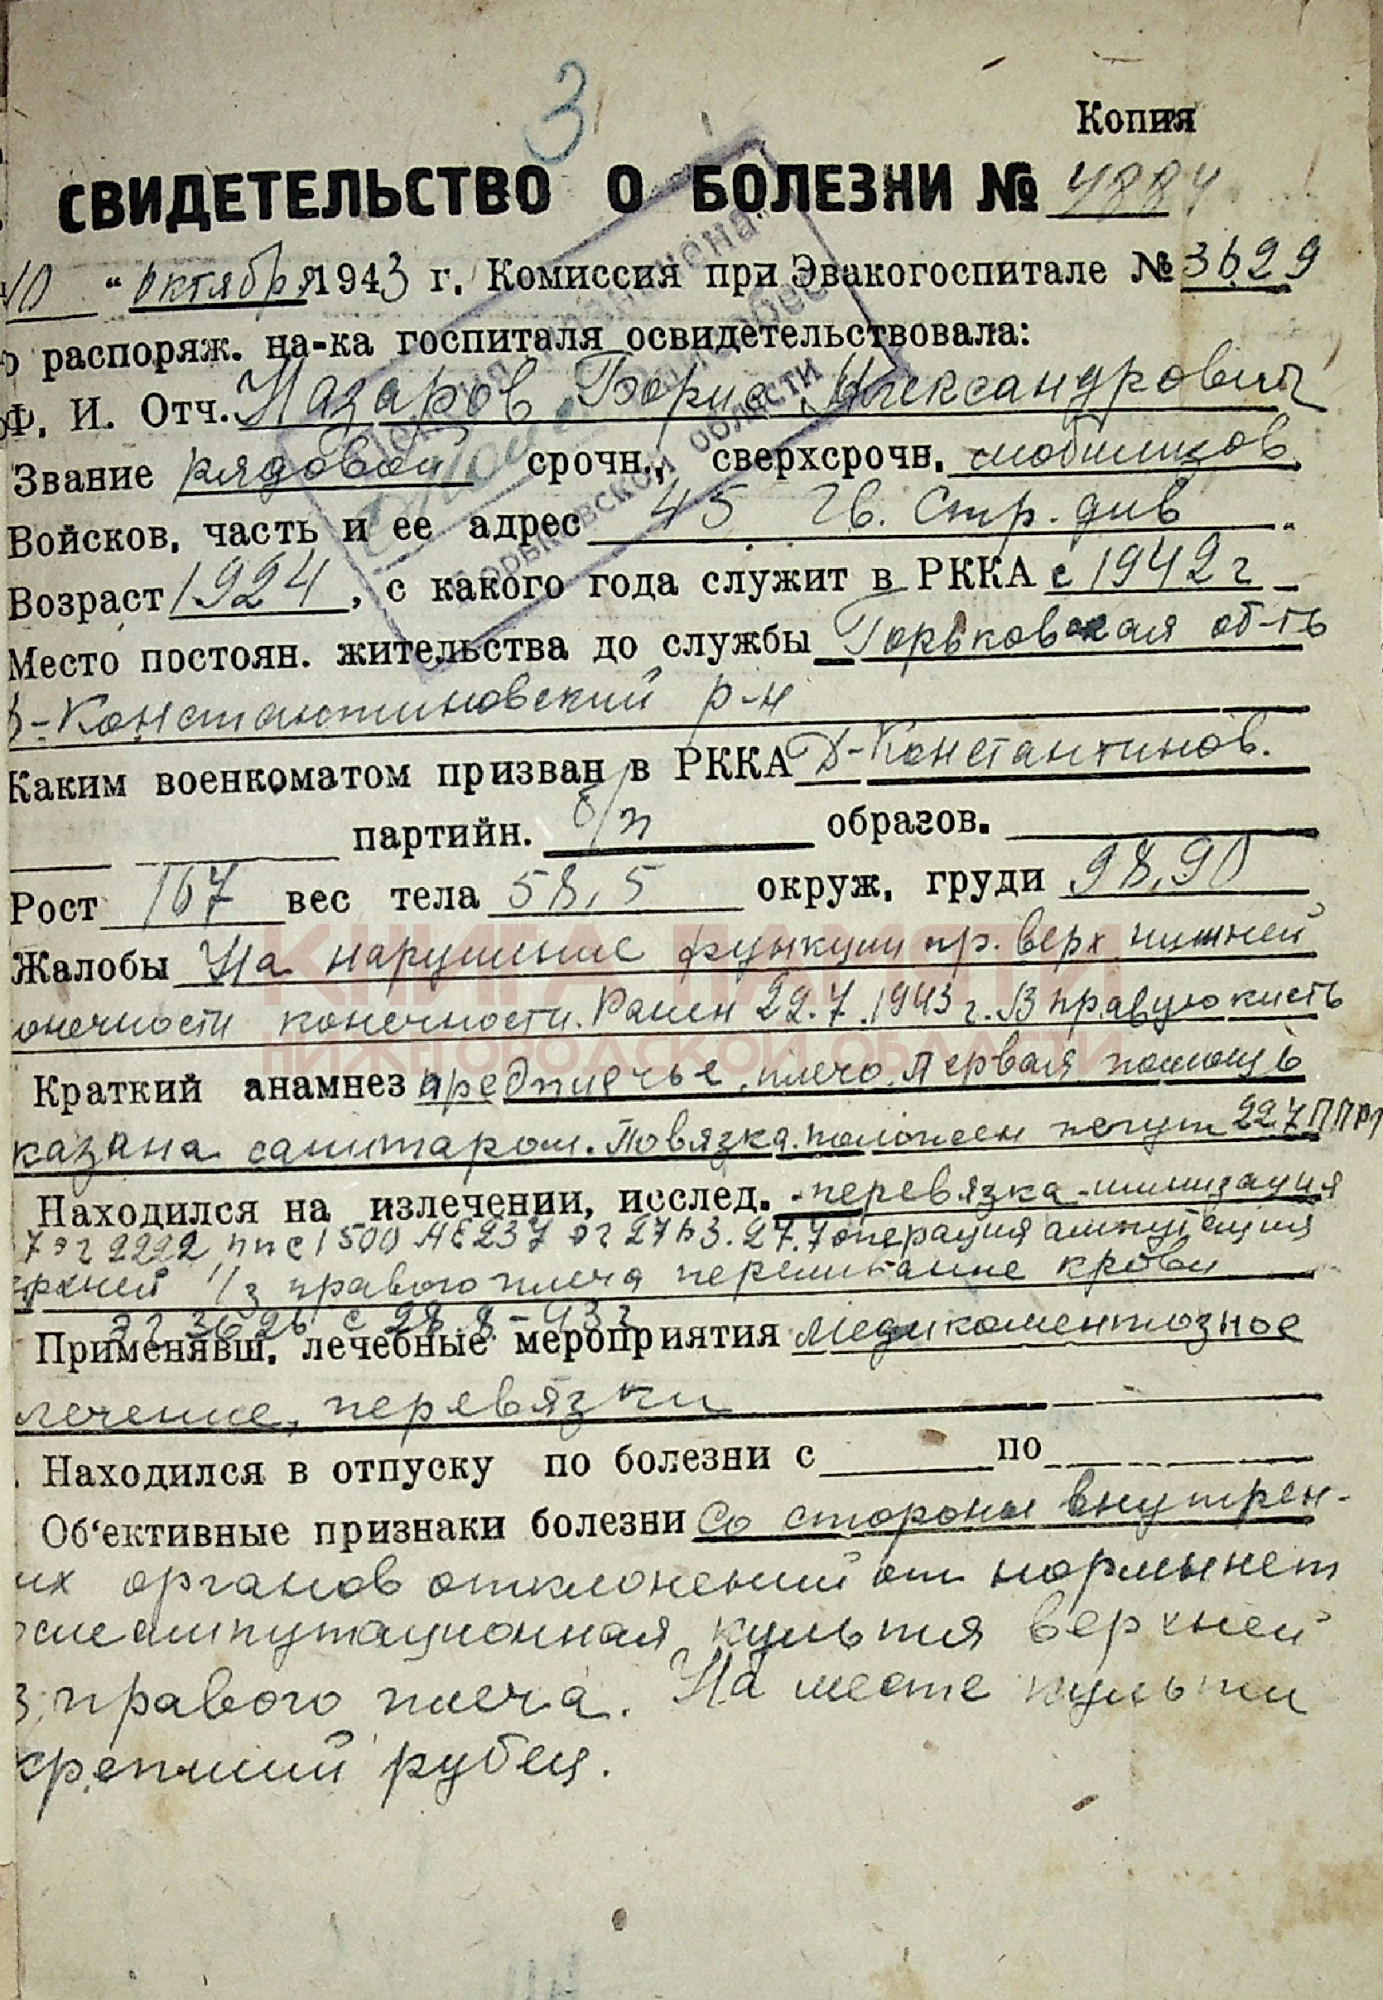 3
Копия
СВИДЕТЕЛЬСТВО О БОЛЕЗНИ № 4884
10 " октября 1943 г. Комиссия при Эвакогоспитале № 3629
о распоряж. на-ка госпиталя освидетельствовала:
Ф. И. Отч. Назаров Борис Александрович
Звание рядовой срочн., сверхсрочн. мобилизов.
Войсков. часть и ее адрес 45 Гв. Стр. див
Возраст 1924, с какого года служит в РККА с 1942 г
Место постоян. жительства до службы Горьковская об-ть
Д-Константиновский р-н
Каким военкоматом призван в РККА Д-Константинов.
партийн. б/п образов.
Рост 167 вес тела 58,5 окруж. груди 98,90
Жалобы На нарушение функции пр. верх нижней
онечности конечности. Ранен 22.7.1943 г. В правую кисть
Краткий анамнез предплечье, плечо. Первая помощь
казана санитаром. Повязка. наложен жгут 22.7 ППМ
Находился на излечении, исслед. перевязка-
7 эг 2222, ппс 1500 эг 27.7 операция ампутация
рхней 1/3 правого плеча переливание крови
эг 3626 с 28.8-43 г
Применявш. лечебные мероприятия медикоментозное
лечение, перевязки
Находился в отпуску по болезни с по
Об'ективные признаки болезни Со стороны внутрен-
их органов отклонений от нормы нет
осле ампутационная культя верхней
3 правого плеча. На месте культи
крепший рубец.
Горьковской области
КНИГА ПАМЯТИ
НИЖЕГОРОДСКОЙ ОБЛАСТИ